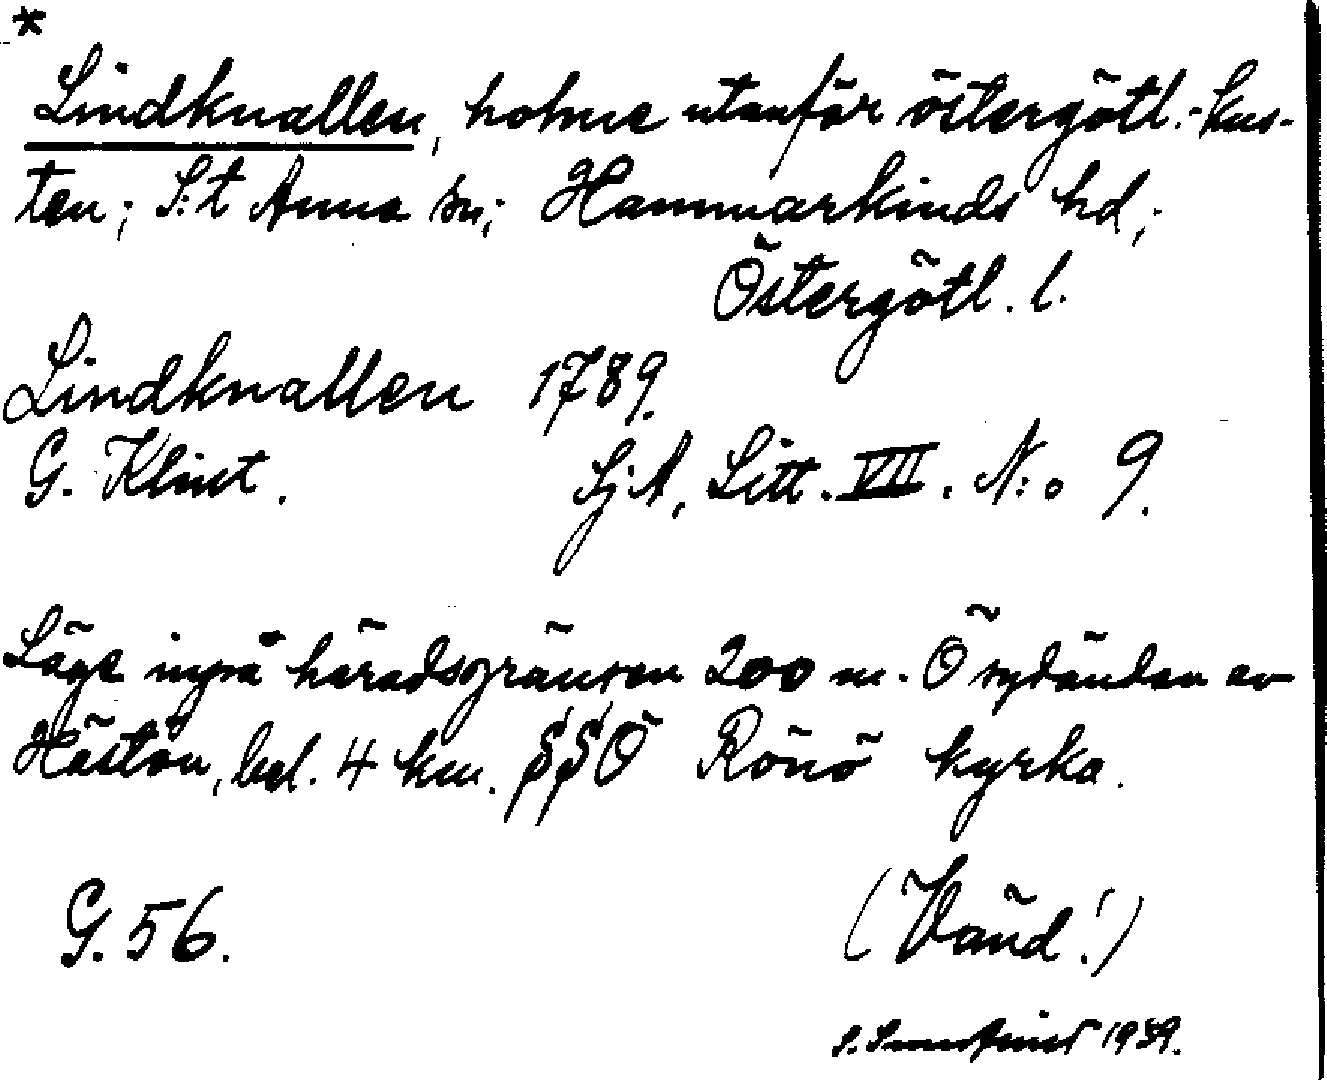 *
Lindknallen, holme utanför östergötl.-kus-
ten; S:t Anna sn; Hammarkinds hd;
Östergötl. l.
Lindknallen 1789.
G. Klint. SjA, Litt. VII. N:o 9.
Läge invid häradsgränsen 200 m. Ö sydändan av
Hästön, bel. 4 km. SSÖ Rönö kyrka.
G. 56. (Vänd!)
S. 1939.